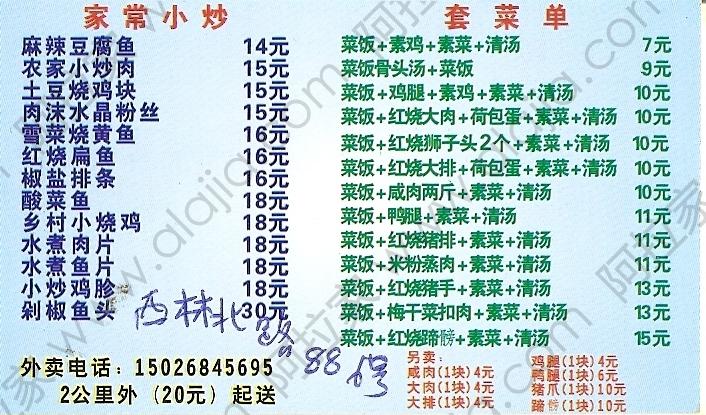 家常小炒
麻辣豆腐鱼 14元
农家小炒肉 15元
土豆烧鸡块 15元
肉沫水晶粉丝 15元
雪菜烧黄鱼 16元
红烧扁鱼 16元
椒盐排条 16元
酸菜鱼 18元
乡村小烧鸡 18元
水煮肉片 18元
水煮鱼片 18元
小炒鸡胗 18元
剁椒鱼头 30元
西林北路88号
外卖电话：15026845695
2公里外（20元）起送
套菜单
菜饭+素鸡+素菜+清汤 7元
菜饭骨头汤+菜饭 9元
菜饭+鸡腿+素鸡+素菜+清汤 10元
菜饭+红烧大肉+荷包蛋+素菜+清汤 10元
菜饭+红烧狮子头2个+素菜+清汤 10元
菜饭+红烧大排+荷包蛋+素菜+清汤 10元
菜饭+咸肉两斤+素菜+清汤 10元
菜饭+鸭腿+素菜+清汤 11元
菜饭+红烧猪排+素菜+清汤 11元
菜饭+米粉蒸肉+素菜+清汤 11元
菜饭+红烧猪手+素菜+清汤 13元
菜饭+梅干菜扣肉+素菜+清汤 13元
菜饭+红烧蹄髈+素菜+清汤 15元
另卖：
咸肉(1块)4元
大肉(1块)4元
大排(1块)4元
鸡腿(1块)4元
鸭腿(1块)6元
猪爪(1块)10元
蹄髈(1块)10元
www.alajia.com 阿拉家